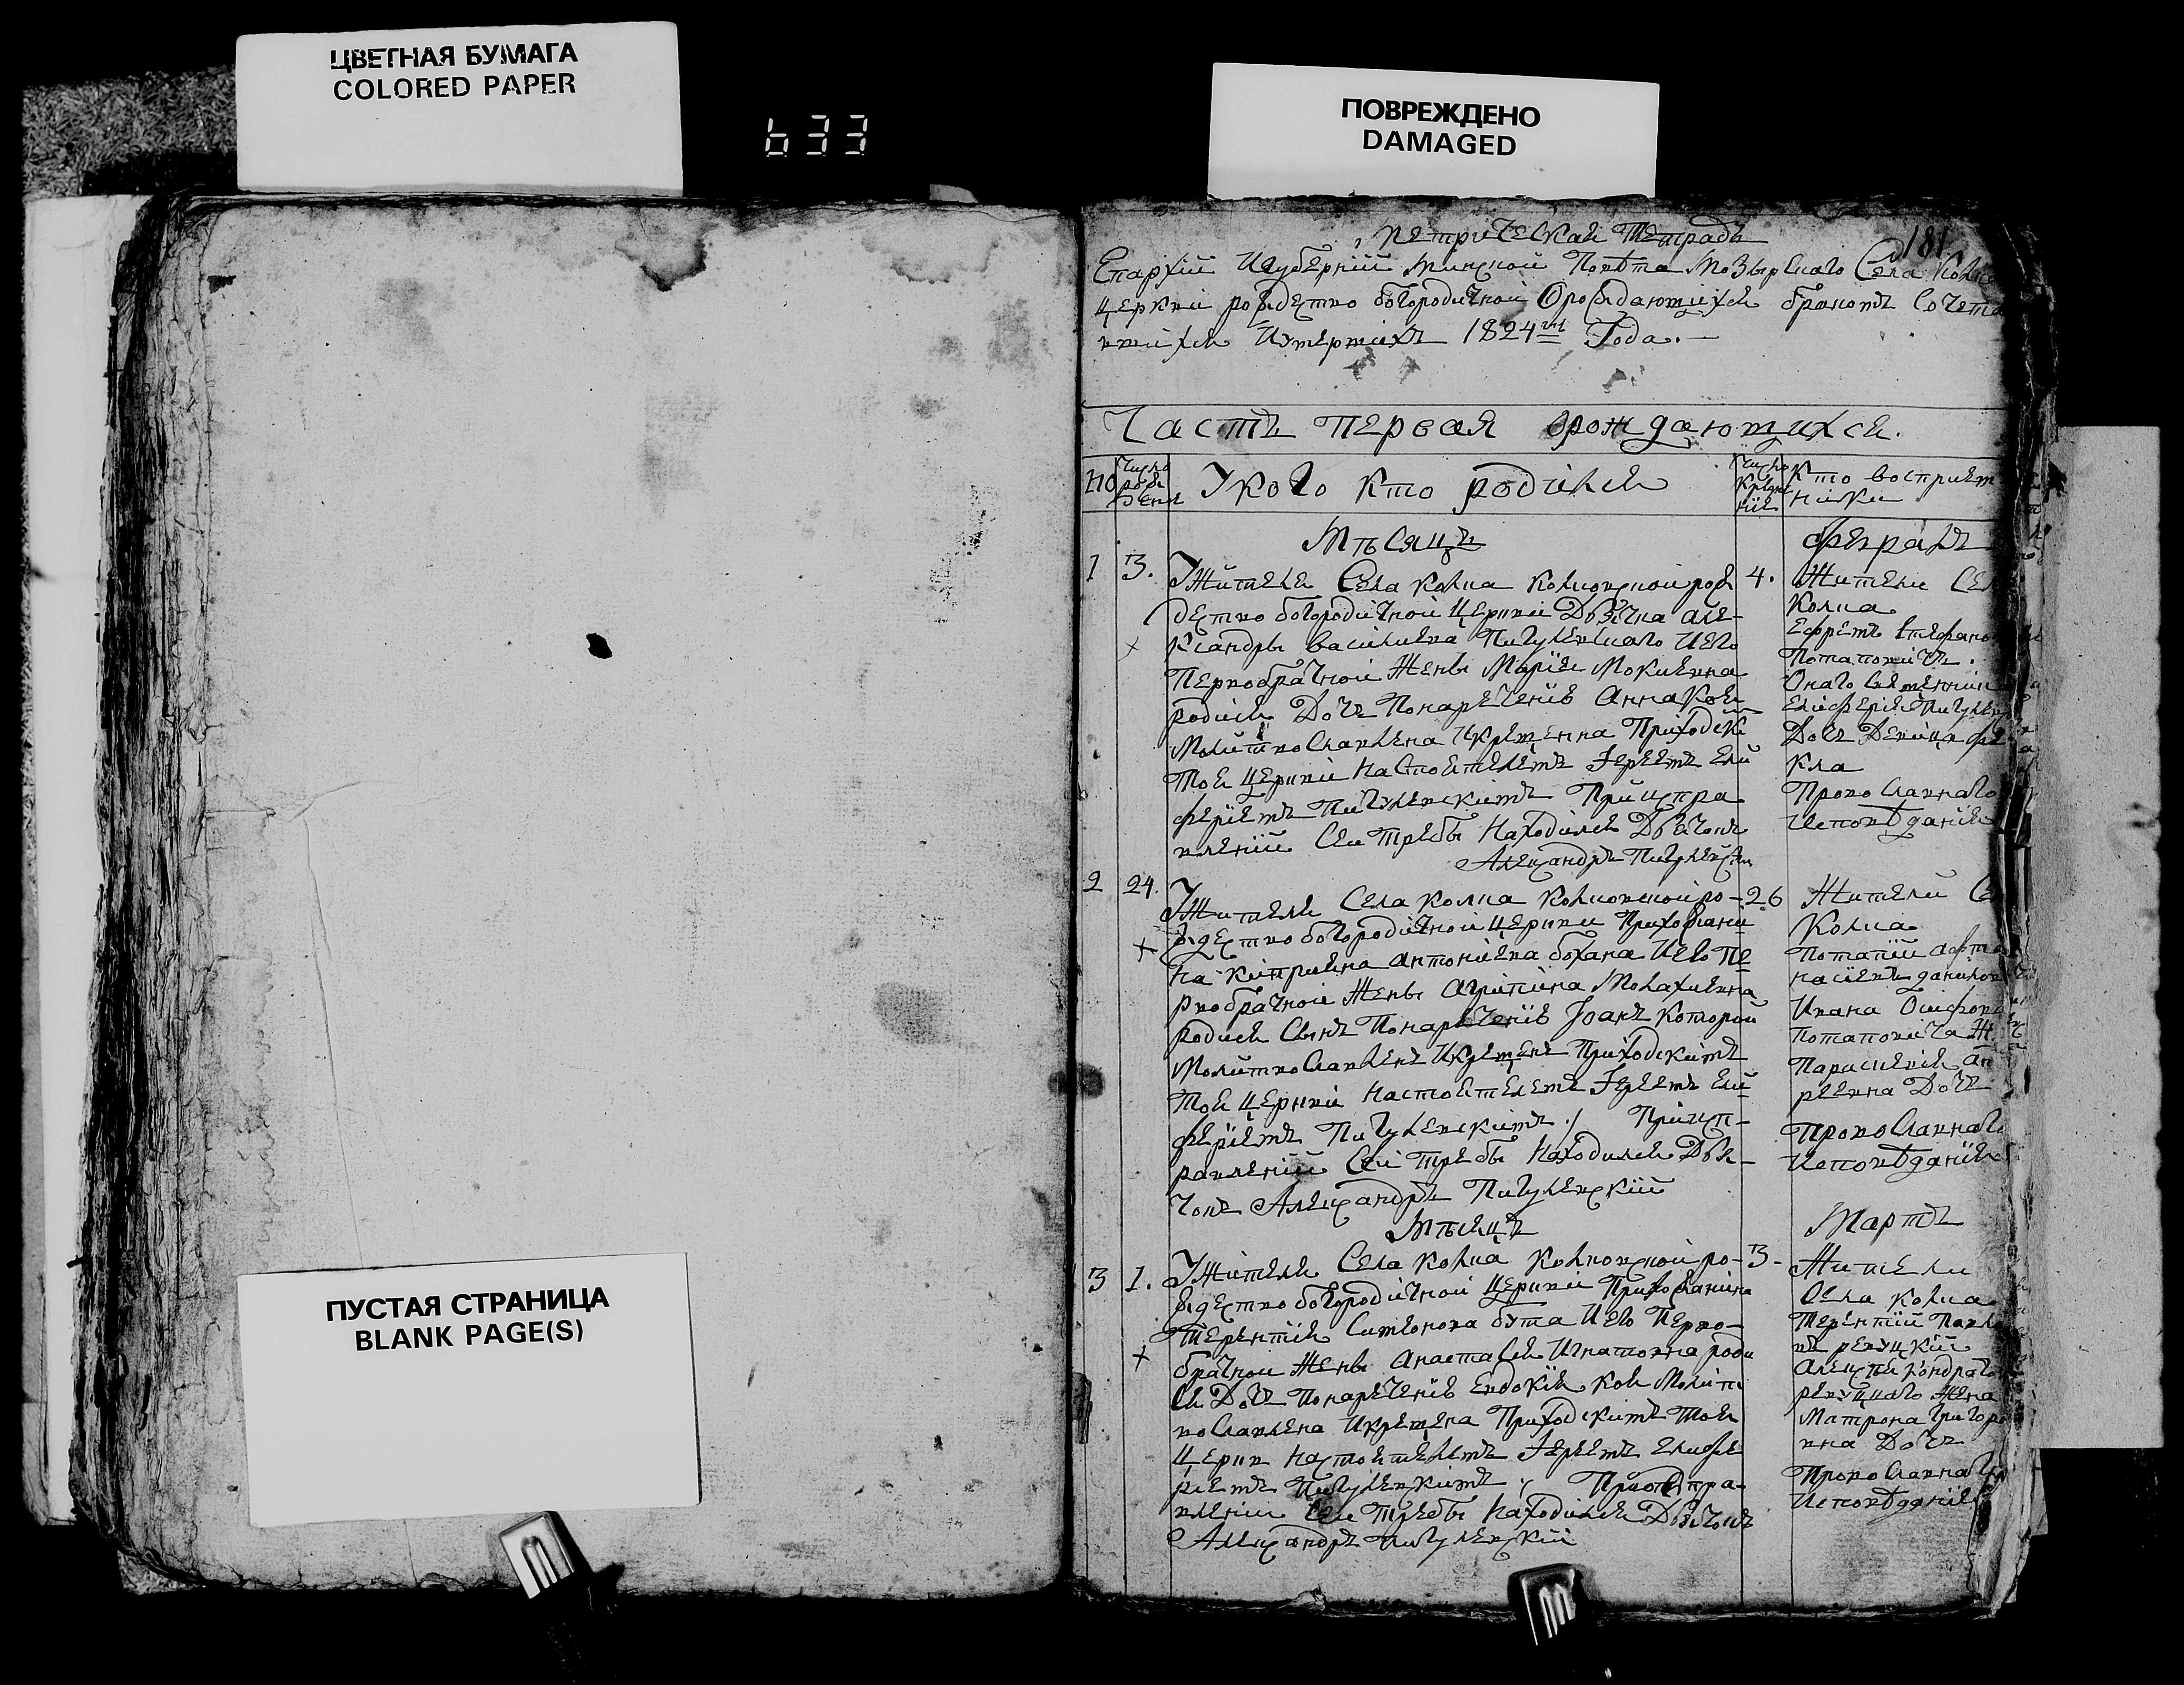 ЦВЕТНАЯ БУМАГА
COLORED PAPER
633
ПОВРЕЖДЕНО
DAMAGED
ПУСТАЯ СТРАНИЦА
BLANK PAGE(S)
181
Метрическая Тетрадь
Епархіи Игуберніи Минской Повѣта Мозырскаго Села
церкви рождество богородичной Орождающихся бракомъ Сочета
вшихся Иумершихъ 1824го Года.
Часть первая орождающихся.
Число рождения
Укого кто родился
Число крещения
Кто восприемники
Мѣсяцъ
Февраль
1 3.
Ужителя Села Колка Колковской рож
дество богородичной Церкви Дьячка але-
ксандры васильева Пигулевскаго Иего
Первобрачной Жены Марїи Мокиевна
родися Дочь Понаречениѣ Анна Коя
Молитвославлена Икрещенна Приходскі
Тоя Церкви Настоятелемъ Іереемъ Елѝ
феріемъ Пигулевскимъ Приисправ
влении Сеи Требы Находился Дьячокъ
Александръ Пигулевский
4.
Жители
Колка
Ефремъ Стефано
Потаповичъ.
Онаго Священни
Елифериѧ
Дочь Девица
кла
Провославнаго
Исповѣданиѧ
2 24.
Ужителя Села Колка Колковской ро-
ждество богородичной Церкви Прихожани
на киприѧна антониева бохана Иего Пе
рвобрачной Жены Агрипина Малахиевна
родися Сынъ Понаречениѣ Іоанъ Которои
Молитвославленъ Икрещенъ Приходскимъ
Тоя Церкви Настоятелемъ Іереемъ Ели
феріемъ Пигулевскимъ Приисп-
равлении Сеи Требы Находился Дья-
чокъ Александръ Пигулевский
26
Жители
Колка
Потапий
насиевъ данилов
Ивана
Потаповича
Параскевия
реевна Дочь
Провославнаго
Исповѣданиѧ
Мѣсяцъ
Мартъ
3 1.
Ужителя Села Колка Колковской ро-
ждество богородичной Церкви Прихожанина
Терентия Симонова бута Иего Перво-
брачной Жены Анастасия Игнатовна роди
ся Дочь Понаречениѣ Евдокия Коя Молит
вославлена Икрещена Приходскимъ Тоя
Церкви Настоятелемъ Іереемъ Елифе
риемъ Пигулевскимъ Приотпра-
влении Сеи Требы Находился Дьячокъ
Александръ Пигулевский
3
Жители
Села Колка
Терентий
ревуцкий
ревуцкаго Жена
Матрона Григорь
вна Дочь
Провославнаго
Исповѣданиѧ